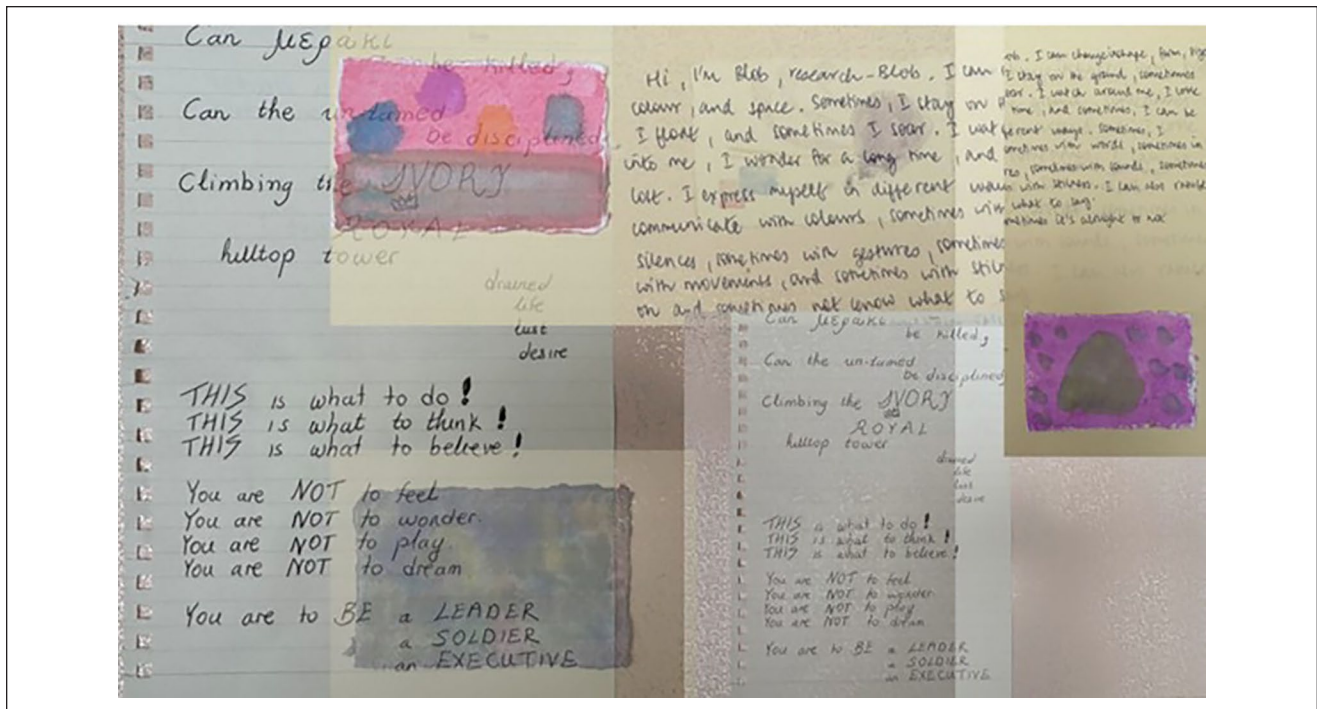 Can μεράκι
be killed,
Can the un-tamed
be disciplined
Climbing the IVORY
ROYAL
hilltop tower
drained
life
lust
desire
THIS is what to do!
THIS is what to think!
THIS is what to believe!
You are NOT to feel
You are NOT to wonder.
You are NOT to play.
You are NOT to dream
You are to BE a LEADER
a SOLDIER
an EXECUTIVE
Hi, I'm Blob, research-Blob. I can
colour, and space. Sometimes, I stay on
I float, and sometimes I soar. I wat
into me, I wonder for a long time, and
lost. I express myself in different
communicate with colours, sometimes with
silences, sometimes with gestures, sometimes
with movements, and sometimes with stil
on and sometimes not know what to
ob. I can change shape, form,
I stay on the ground, sometimes
soar. I watch around me, I look
time, and sometimes, I can be
ferent ways. Sometimes, I
ometimes with words, sometimes in
sometimes with sounds, sometimes
with stillness. I can also ramble
what to say.
ometimes it's alright to not
Can μεράκι
be killed,
Can the un-tamed
be disciplined
Climbing the IVORY
ROYAL
hilltop tower
drained
life
lust
desire
THIS is what to do!
THIS is what to think!
THIS is what to believe!
You are NOT to feel
You are NOT to wonder.
You are NOT to play.
You are NOT to dream
You are to BE a LEADER
a SOLDIER
an EXECUTIVE